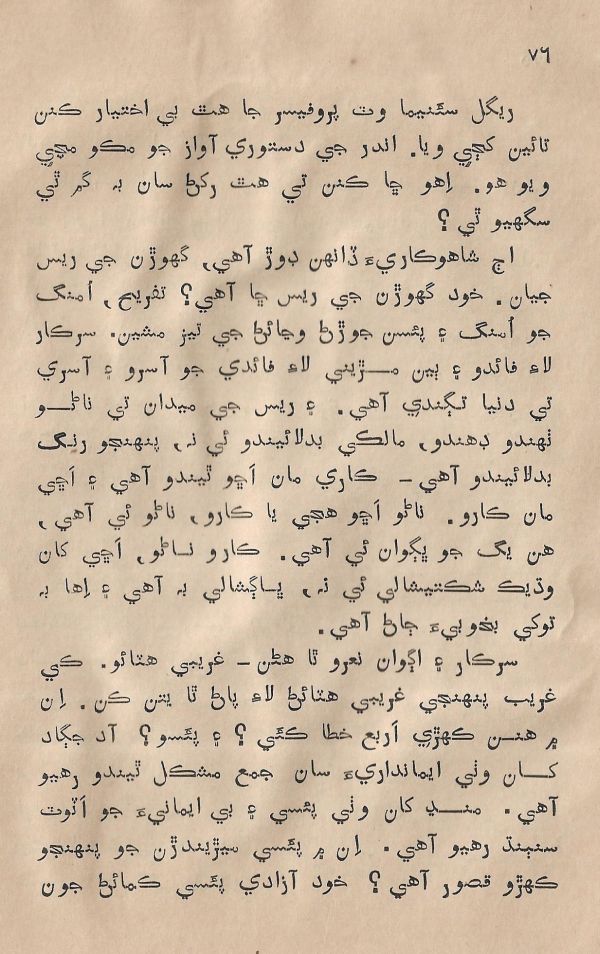 ٧٦
ريگل سئنيما وٽ پروفيسر جا هٿ بي اختيار ڪنن
تائين کڄي ويا. اندر جي دستوري آواز جو مڪو مچي
ويو هو. اِهو ڇا ڪنن تي هٿ رکڻ سان بہ گم ٿي
سگهيو ٿي؟
اڄ شاهوڪاريءَ ڏانهن ڊوڙ آهي, گهوڙن جي ريس
جيان. خود گهوڙن جي ريس ڇا آهي؟ تفريح, اُمنگ
جو اُمنگ ۽ پئسن جوڙڻ وڃائڻ جي تيز مشين. سرڪار
لاءِ فائدو ۽ ٻين مــڙيني لاءِ فائدي جو آسرو ۽ آسري
تي دنيا تڳندي آهي. ۽ ريس جي ميدان تي ناڻــو
ٺهندو ڊهندو, مالڪي بدلائيندو ئي نہ, پنهنجو رنگ
بدلائيندو آهي – ڪاري مان اَڇو ٿيندو آهي ۽ اَڇي
مان ڪارو. ناڻو اَڇو هجي يا ڪارو, ناڻو ئي آهي,
هن يگ جو ڀڳوان ئي آهي. ڪارو نـاڻو, اَڇي کان
وڌيڪ شڪتيشالي ئي نہ, ڀـاڳشالي بہ آهي ۽ اِها بہ
توکي بخوبيءَ ڄاڻ آهي.
سرڪار ۽ اڳوان نعرو ٿا هڻن – غريبي هٽائو. ڪي
غريب پنهنجي غريبي هٽائڻ لاءِ پاڻ ٿا يتن ڪن. اِن
۾ هنـن ڪهڙي اَربع خطا ڪئي؟ ۽ پئسو؟ آد جڳاد
کــان وٺي ايمانداريءَ سان جمع مشڪل ٿيندو رهيو
آهي. منــڍ کان وٺي پئسي ۽ بي ايمانيءَ جو اَٽوٽ
سنٻنڌ رهيو آهي. اِن ۾ پئسي ميڙيندڙن جو پنهنجو
ڪهڙو قصور آهي؟ خود آزادي پئسي ڪمائڻ جون